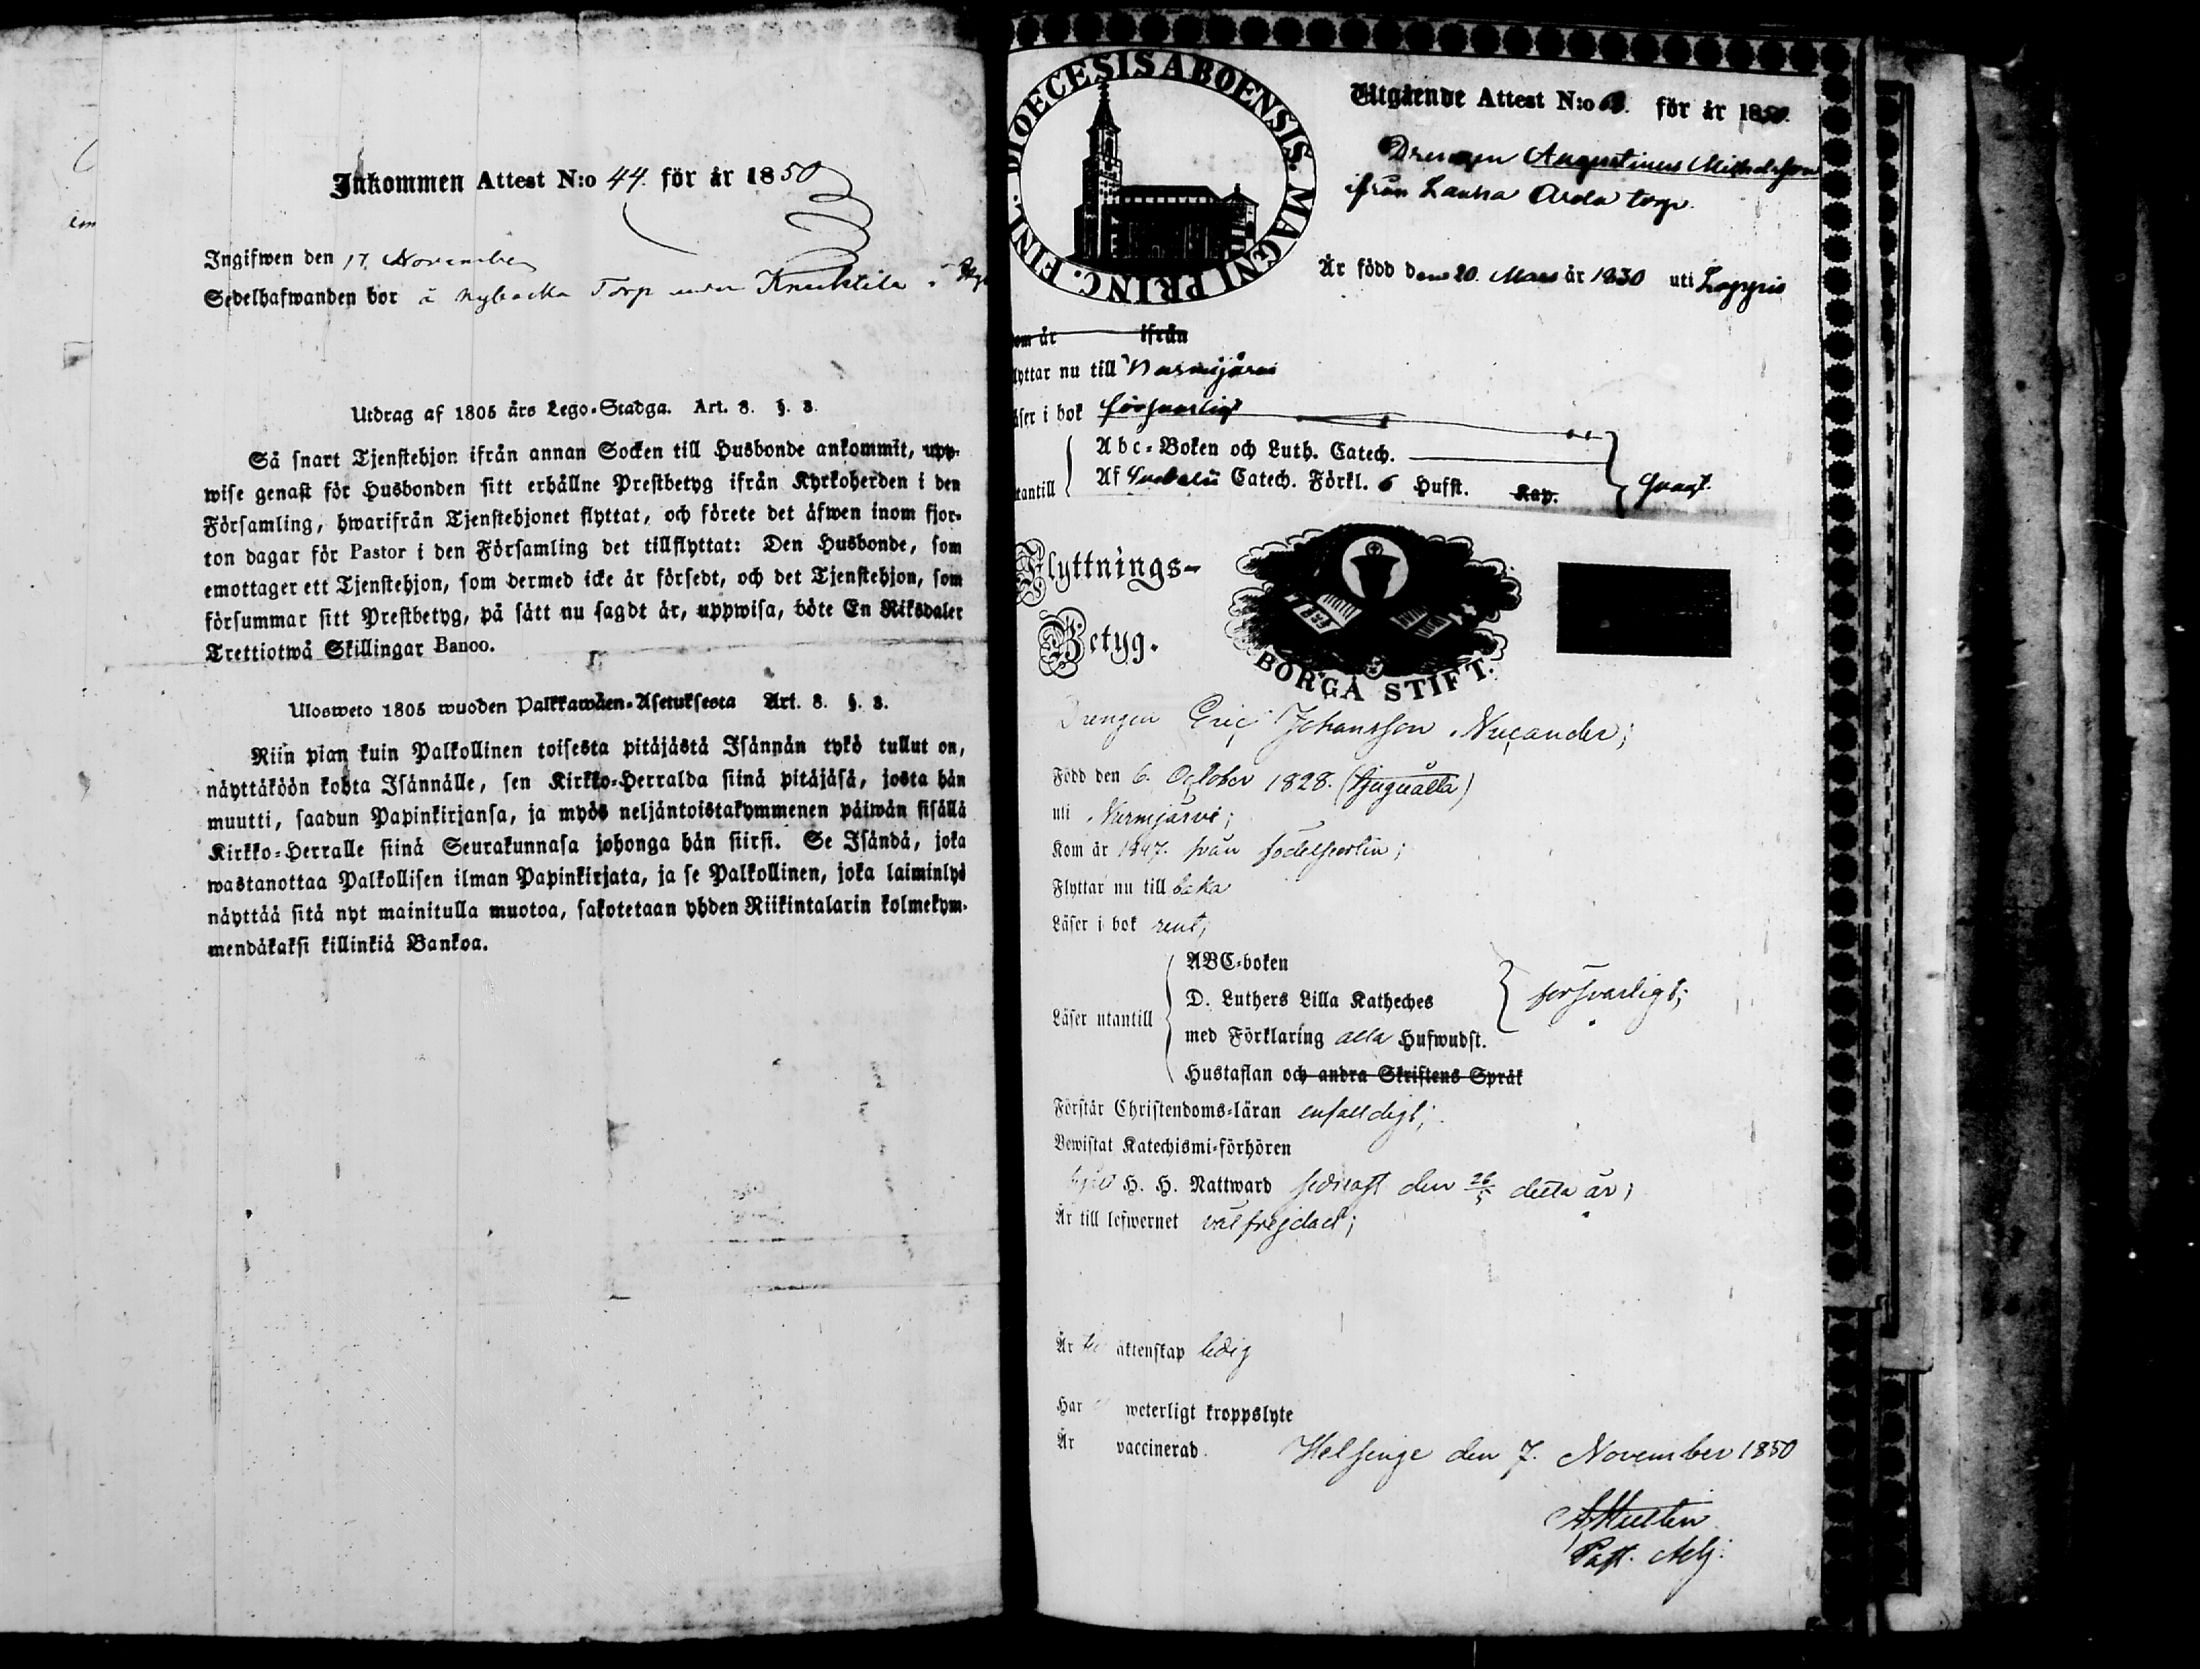 Inkommen Attest N:o 44. för år 1850
Ingifwen den 17. November
Sedelhafwanden bor å Nybacka Torp under Knuktila i
Utdrag af 1805 års Lego-Stadga. Art. 8. §. 3.
Så snart Tjenstehjon ifrån annan Socken till Husbonde ankommit, upp-
wise genast för Husbonden sitt erhållne Prestbetyg ifrån Kyrkoherden i den
Församling, hwarifrån Tjenstehjonet flyttat, och förete det äfwen inom fjor-
ton dagar för Pastor i den Församling det tillflyttat: Den Husbonde, som
emottager ett Tjenstehjon, som dermed icke är försedt, och det Tjenstehjon, som
försummar sitt Prestbetyg, på sätt nu sagdt är, uppwisa, böte En Riksdaler
Trettiotwå Skillingar Banco.
Ulosweto 1805 wuoden Palkkawäen-Asetuksesta Art. 8. §. 3.
Niin pian kuin Palkollinen toisesta pitäjästä Isännän tykö tullut on,
näyttäköön kohta Isännälle, sen Kirkko-Herralda siinä pitäjäsä, josta hän
muutti, saadun Papinkirjansa, ja myös neljäntoistakymmenen päiwän sisällä
Kirkko-Herralle siinä Seurakunnasa johonga hän siirsi. Se Isändä, joka
wastanottaa Palkollisen ilman Papinkirjata, ja se Palkollinen, joka laiminlyö
näyttää sitä nyt mainitulla muotoa, sakotetaan yhden Riikintalarin kolmekym-
mendäkaksi killinkiä Bankoa.
DIOECESIS ABOENSIS. MAGNI PRINC. FINL.
Utgående Attest N:o för år 1850.
Drengen Augustinus Michelsson
ifrån Lauha Arola torp.
Är född den 20. Mars år 1830 uti Loppis
om år ifrån
lyttar nu till Nurmijärvi
äser i bok försvarligt
tantill
Abc-Boken och Luth. Catech.
Af Svebelii Catech. Förkl. 6 Hufst. Kap.
svagt.
Flyttnings-
Betyg.
BORGÅ STIFT.
Drengen Eric Johansson Nucander;
Född den 6. October 1828.
uti Nurmjärvi;
Kom år 1847. från födelseorten;
Flyttar nu till
Läser i bok rent;
Läser utantill
ABC-boken
D. Luthers Lilla Katheches
med Förklaring alla Hufwudst.
Hustaflan och andra Skriftens Språk
försvarligt;
Förstår Christendoms-läran enfaldigt;
Bewistat Katechismi-förhören
H. H. Nattward sednast den 26/5 detta år;
Är till lefwernet välfrejdad;
Är till äktenskap ledig
Har weterligt kroppslyte
Är vaccinerad.
Helsinge den 7. November 1850
A Hultin
Past. Adj.